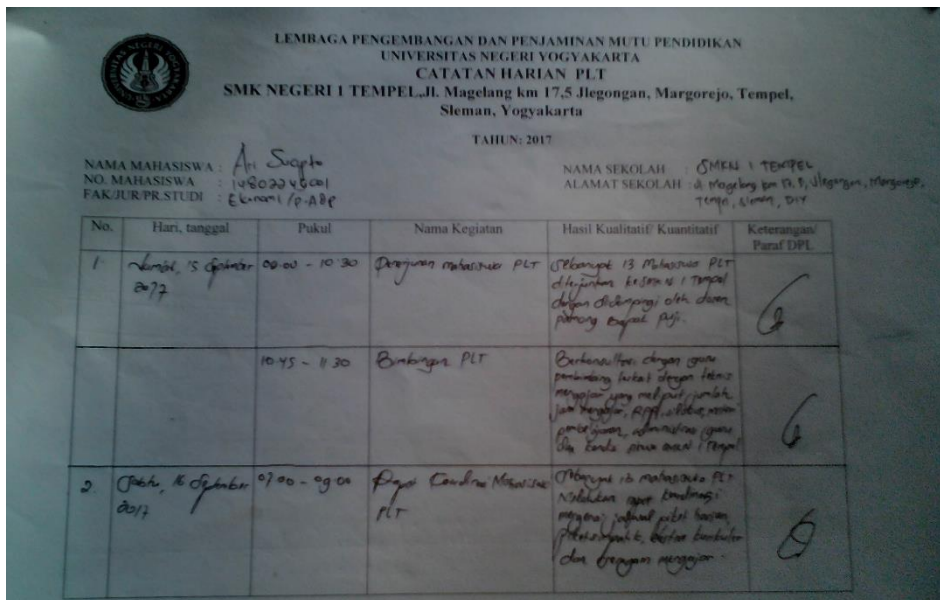 LEMBAGA PENGEMBANGAN DAN PENJAMINAN MUTU PENDIDIKAN
UNIVERSITAS NEGERI YOGYAKARTA
CATATAN HARIAN PLT
SMK NEGERI 1 TEMPEL,Jl. Magelang km 17,5 Jlegongan, Margorejo, Tempel,
Sleman, Yogyakarta
TAHUN: 2017
NAMA MAHASISWA : Ari Sucipto
NO. MAHASISWA :
FAK/JUR/PR.STUDI : Ekonomi / P.ADP
NAMA SEKOLAH : SMKN 1 TEMPEL
ALAMAT SEKOLAH : Jl Magelang km 17,5, Jlegongan, Margorejo,
Tempel, Sleman, DIY
No. Hari, tanggal Pukul Nama Kegiatan Hasil Kualitatif/ Kuantitatif Keterangan/
Paraf DPL
1. Jumat, 15 September 2017 - 10.30 Penerjunan mahasiswa PLT
Sebanyak 13 Mahasiswa PLT
diterjunkan ke SMKN 1 Tempel
dengan didampingi oleh dosen
pamong Bapak Puji.
10.45 - 11.30 Bimbingan PLT
Berkonsultasi dengan guru
pembimbing terkait dengan teknis
mengajar yang meliputi jumlah
jam mengajar, RPP, silabus, materi
pembelajaran, administrasi guru
dan kondisi siswa SMKN 1 Tempel
2. Sabtu, 16 September 2017 07.00 - 09.00 Rapat Koordinasi Mahasiswa PLT
Sebanyak 13 mahasiswa PLT
melakukan rapat koordinasi
mengenai jadwal piket harian,
dan seragam mengajar.